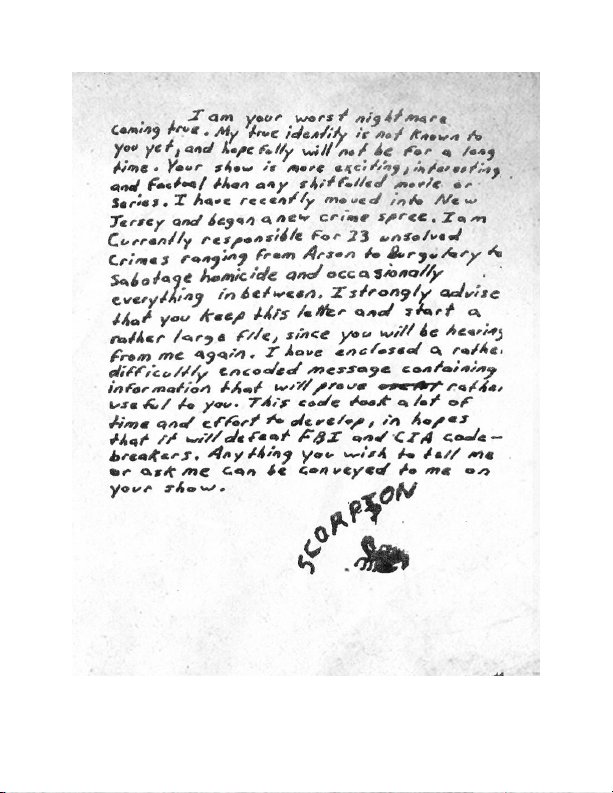 I am your worst nightmare
coming true. My true identity is not known to
you yet, and hopefully will not be for a long
time. Your show is more exciting, interesting
and factual than any shitfilled movie or
series. I have recently moved into New
Jersey and began a new crime spree. I am
Currently responsible for 23 unsolved
Crimes ranging from Arson to Burgulary to
Sabotage homicide and occasionally
everything inbetween. I strongly advise
that you keep this letter and start a
rather large file, since you will be hearing
from me again. I have enclosed a rather
difficultly encoded message containing
information that will prove rather
useful to you. This code took a lot of
time and effort to develop, in hopes
that it will defeat FBI and CIA code-
breakers. Anything you wish to tell me
or ask me can be conveyed to me on
your show.
SCORPION